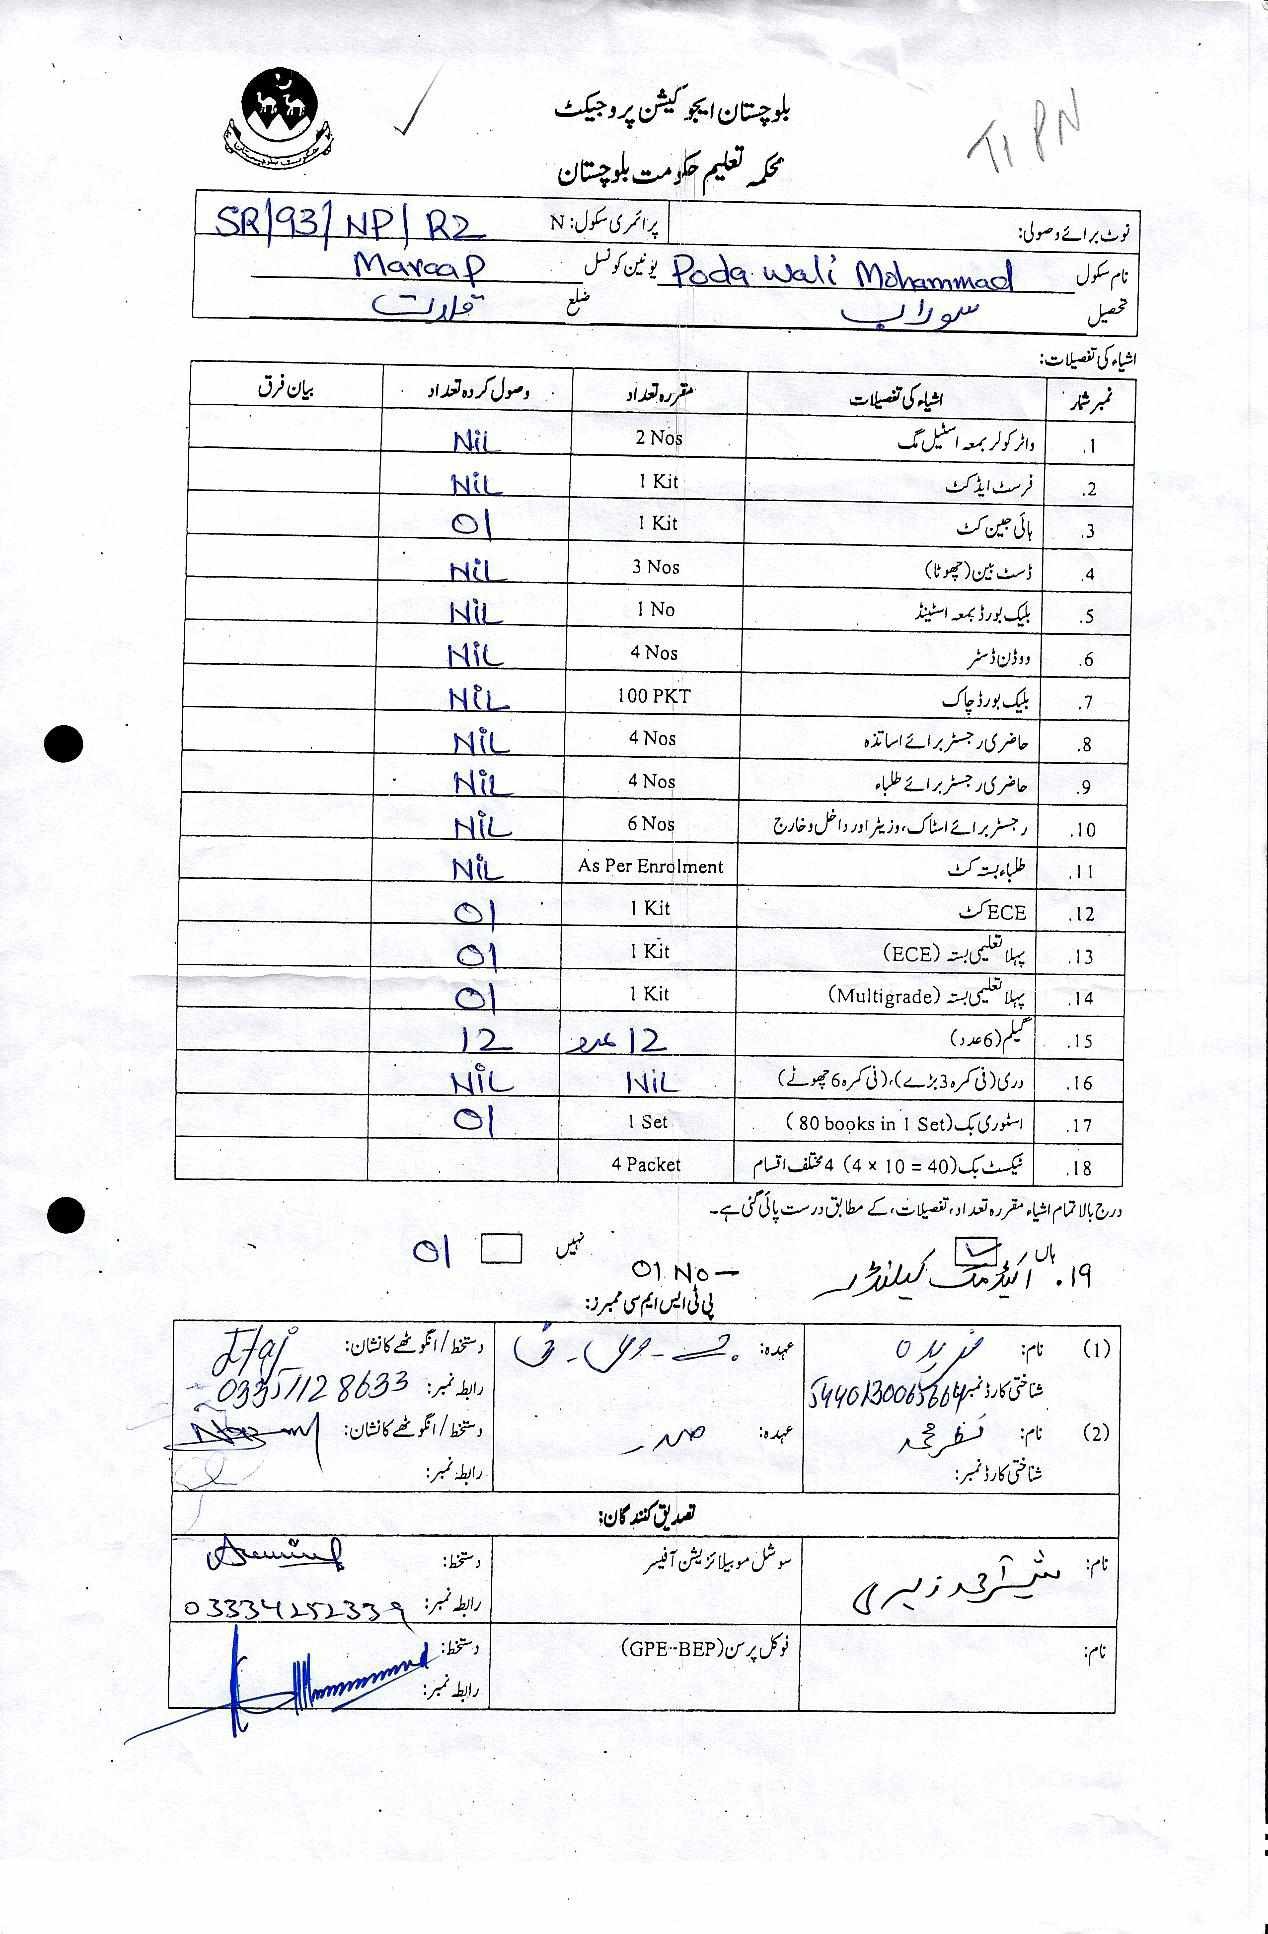 بلوچستان ایجوکیشن پروجیکٹ
T1 PN
محکمہ تعلیم حکومت بلوچستان
نوٹ برائے وصولی: پرائمری سکول: N SR/93/NP/R2
نام سکول Poda wali Mohammad یونین کونسل Maraap
تحصیل سوراب ضلع قلات
اشیاء کی تفصیلات:
نمبر شمار اشیاء کی تفصیلات مقررہ تعداد وصول کردہ تعداد بیان فرق
1. واٹر کولر بمعہ اسٹیل مگ 2 Nos Nil
2. فرسٹ ایڈ کٹ 1 Kit NiL
3. ہائی جین کٹ 1 Kit 01
4. ڈسٹ بین (چھوٹا) 3 Nos NiL
5. بلیک بورڈ بمعہ اسٹینڈ 1 No NiL
6. ووڈن ڈسٹر 4 Nos NiL
7. بلیک بورڈ چاک 100 PKT NiL
8. حاضری رجسٹر برائے اساتذہ 4 Nos NiL
9. حاضری رجسٹر برائے طلباء 4 Nos NiL
10. رجسٹر برائے اسٹاک، وزیٹر اور داخل و خارج 6 Nos NiL
11. طلباء بستہ کٹ As Per Enrolment NiL
12. ECE کٹ 1 Kit 01
13. پہلا تعلیمی بستہ (ECE) 1 Kit 01
14. پہلا تعلیمی بستہ (Multigrade) 1 Kit 01
15. گلیم (6 عدد) 12 عدد 12
16. دری (فی کمرہ 3 بڑے)، (فی کمرہ 6 چھوٹے) NiL NiL
17. اسٹوری بک (80 books in 1 Set) 1 Set 01
18. ٹیکسٹ بک (4 × 10 = 40) 4 مختلف اقسام 4 Packet
درج بالا تمام اشیاء مقررہ تعداد، تفصیلات، کے مطابق درست پائی گئی ہے۔
ہاں نہیں 01
۱۹. اکیڈمک کیلنڈر 01 No –
پی ٹی ایس ایم سی ممبرز:
(1) نام: فریدہ عہدہ: دستخط / انگوٹھے کا نشان:
شناختی کارڈ نمبر: رابطہ نمبر: 03357128633
(2) نام: نظر محمد عہدہ: صدر دستخط / انگوٹھے کا نشان:
شناختی کارڈ نمبر: رابطہ نمبر:
تصدیق کنندگان:
نام: سوشل موبیلائزیشن آفیسر دستخط:
رابطہ نمبر: 03334252339
نام: فوکل پرسن (GPE-BEP) دستخط:
رابطہ نمبر: